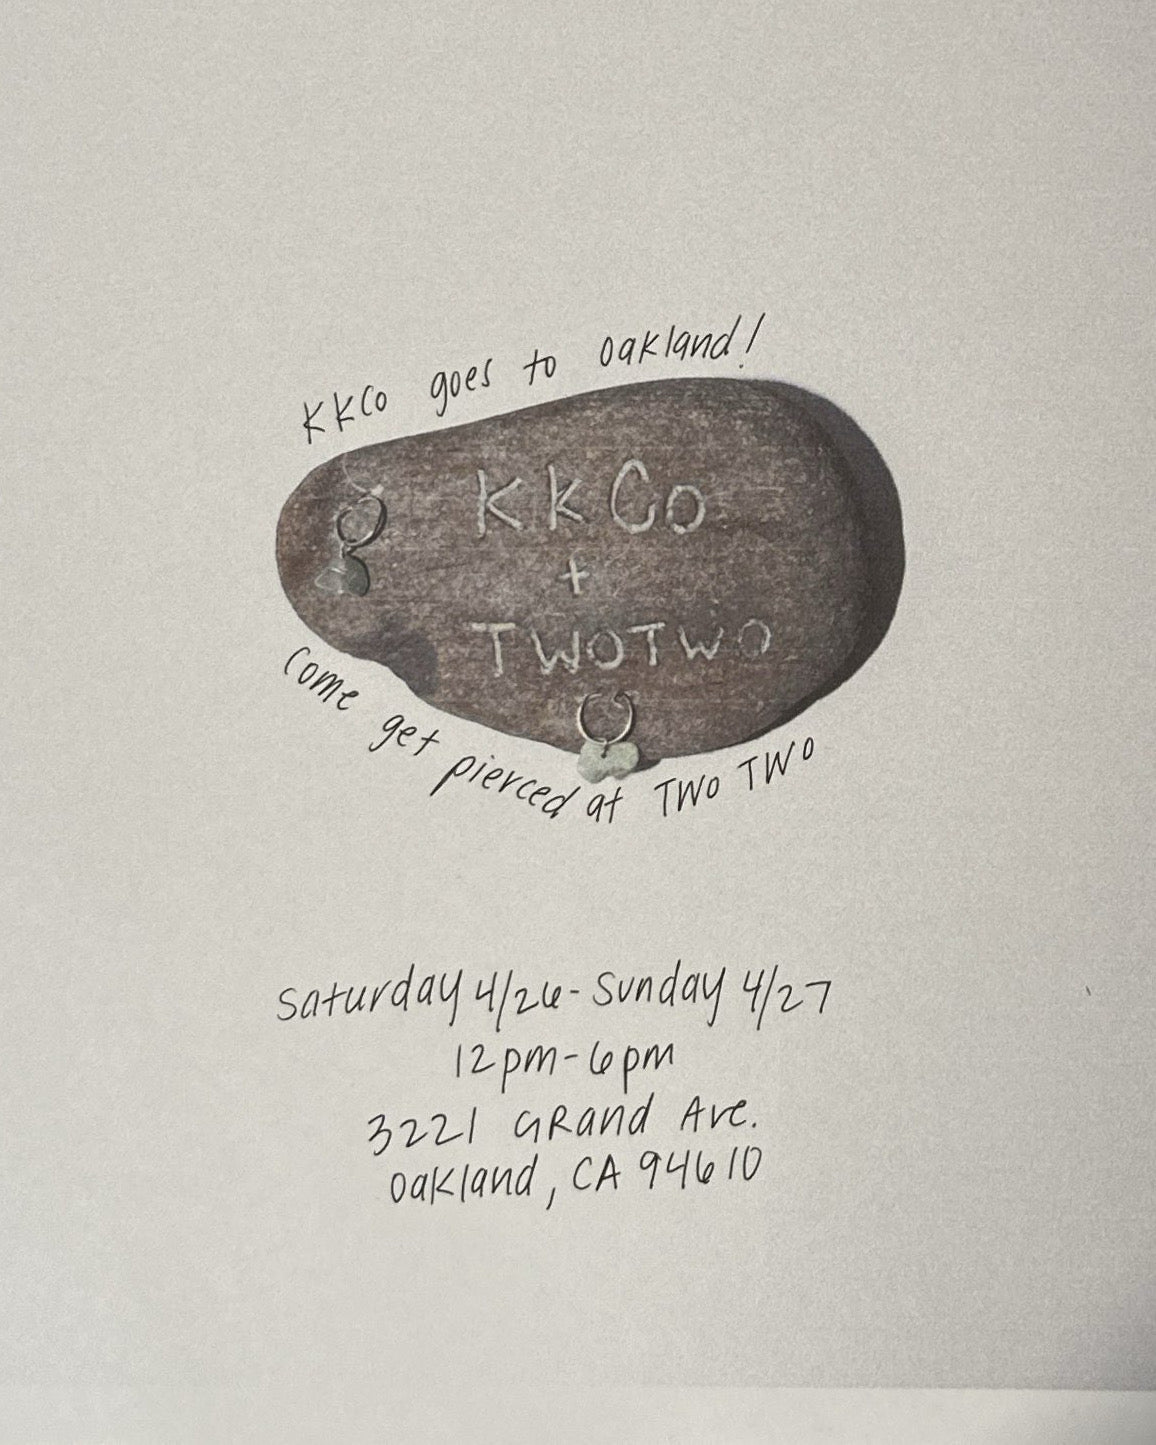 KKCo goes to Oakland!
KKCo
+
TWOTWO
Come get pierced at TWO TWO
Saturday 4/26 - Sunday 4/27
12pm - 6pm
3221 GRand Ave.
Oakland, CA 94610